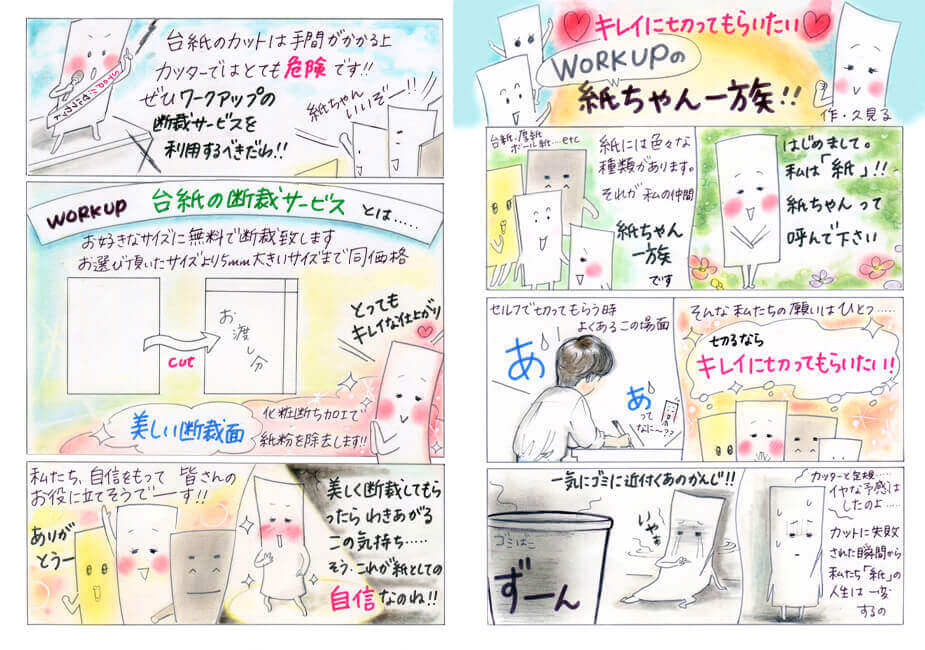 キレイに切ってもらいたい
WORKUPの
紙ちゃん一族!!
作・久見る
はじめまして。
私は「紙」!!
紙ちゃんって
呼んで下さい
台紙、厚紙
ボール紙…etc
紙には色々な
種類があります。
それが私の仲間
紙ちゃん
一族
です
そんな私たちの願いはひとつ……
切るなら
キレイに切ってもらいたい!
セルフで切ってもらう時
よくあるこの場面
あ
あ
って
なに〜??
カッターと定規……
イヤな予感は
したのよ……
カットに失敗
された瞬間から
私たち「紙」の
人生は一変
するの
一気にゴミに近付くあのかんじ!!
いやぁ
ゴミばこ
ずーん
台紙のカットは手間がかかる上
カッターではとても危険です!!
ぜひワークアップの
断裁サービスを
利用するべきだわ!!
紙ちゃん
いいぞー!!
WORKUP 台紙の断裁サービスとは…
お好きなサイズに無料で断裁致します
お選び頂いたサイズより5mm大きいサイズまで同価格
cut
お渡し分
とっても
キレイな仕上がり
美しい断裁面
化粧断ち加工で
紙粉を除去します!!
美しく断裁してもら
ったらわきあがる
この気持ち……
そう、これが紙としての
自信なのね!!
私たち、自信をもって皆さんの
お役に立てそうでーす!!
ありが
とうー